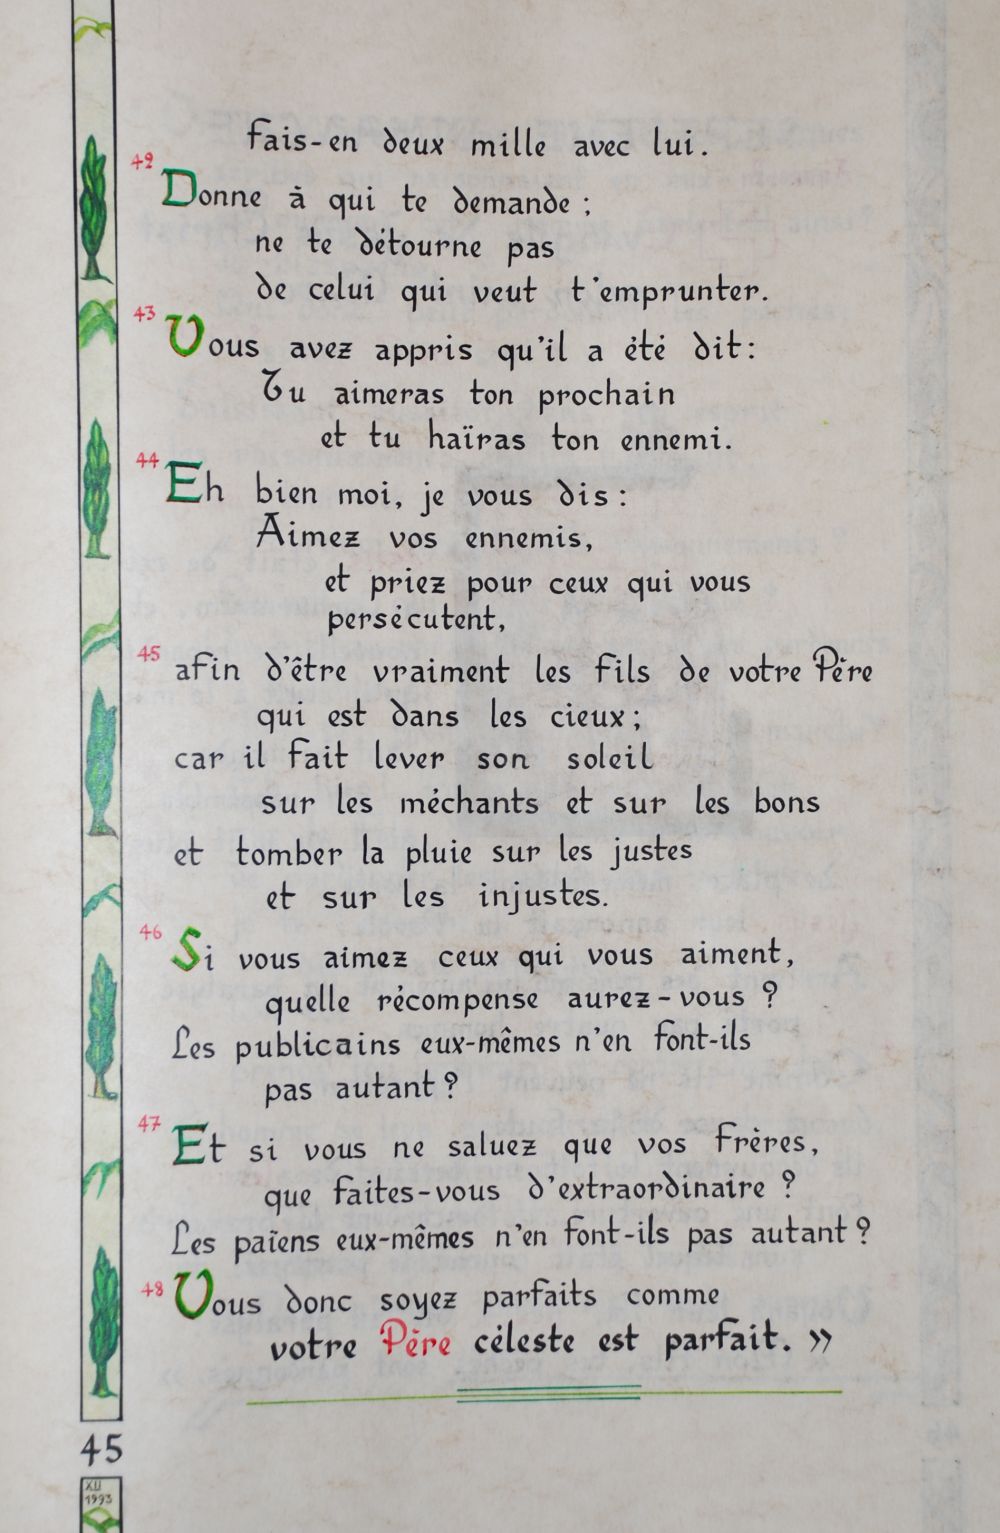 fais-en deux mille avec lui.
42 Donne à qui te demande ;
ne te détourne pas
de celui qui veut t'emprunter.
43 Vous avez appris qu'il a été dit :
Tu aimeras ton prochain
et tu haïras ton ennemi.
44 Eh bien moi, je vous dis :
Aimez vos ennemis,
et priez pour ceux qui vous
persécutent,
45 afin d'être vraiment les fils de votre Père
qui est dans les cieux ;
car il fait lever son soleil
sur les méchants et sur les bons
et tomber la pluie sur les justes
et sur les injustes.
46 Si vous aimez ceux qui vous aiment,
quelle récompense aurez-vous ?
Les publicains eux-mêmes n'en font-ils
pas autant ?
47 Et si vous ne saluez que vos frères,
que faites-vous d'extraordinaire ?
Les païens eux-mêmes n'en font-ils pas autant ?
48 Vous donc soyez parfaits comme
votre Père céleste est parfait. »
45
XII
1993